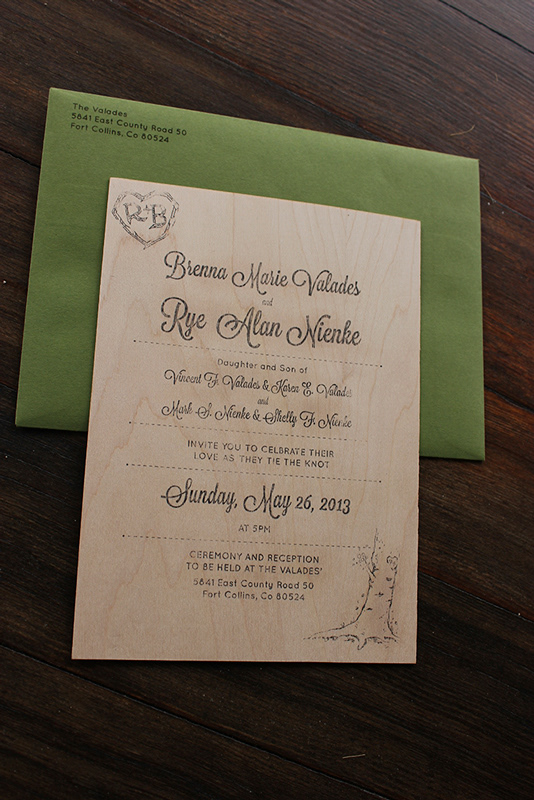 The Valades
5841 East County Road 50
Fort Collins, Co 80524
R+B
Brenna Marie Valades
and
Rye Alan Nienke
Daughter and Son of
Vincent F. Valades & Karen E. Valades
and
Mark S. Nienke & Shelly F. Nienke
INVITE YOU TO CELBRATE THEIR
LOVE AS THEY TIE THE KNOT
Sunday, May 26, 2013
AT 5PM
CEREMONY AND RECEPTION
TO BE HELD AT THE VALADES'
5841 East County Road 50
Fort Collins, Co 80524